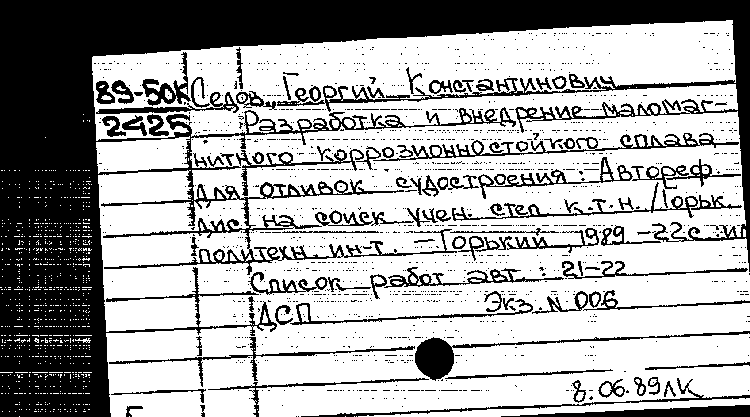 89-50К Седов, Георгий Константинович
2425 Разработка и внедрение маломаг-
нитного коррозионностойкого сплава
для отливок судостроения : Автореф.
дис. на соиск учен. степ. к.т.н. /Горьк.
политехн. ин-т. – Горький, 1989 – 22с :ил
Список работ авт. : 21-22
ДСП Экз. N 006
8.06.89ЛК